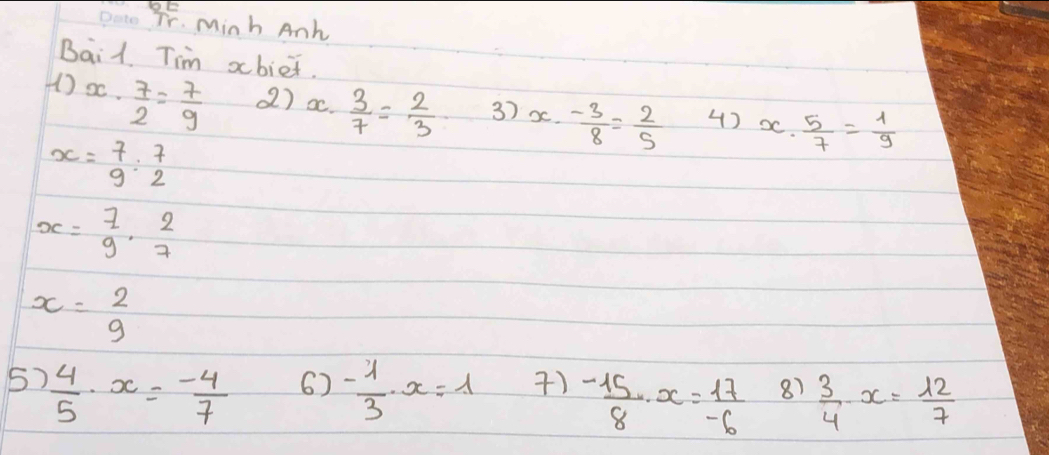 6E
Date Tr. Minh Anh
Bài 1. Tìm x biết.
1) x . 7/2 = 7/9 2) x . 3/7 = 2/3 3) x . -3/8 = 2/5 4) x . 5/7 = 1/9
x = 7/9 : 7/2
x = 7/9 . 2/7
x = 2/9
5) 4/5 . x = -4/7 6) -1/3 . x = 1 7) -15/8 . x = 17/-6 8) 3/4 . x = 12/7